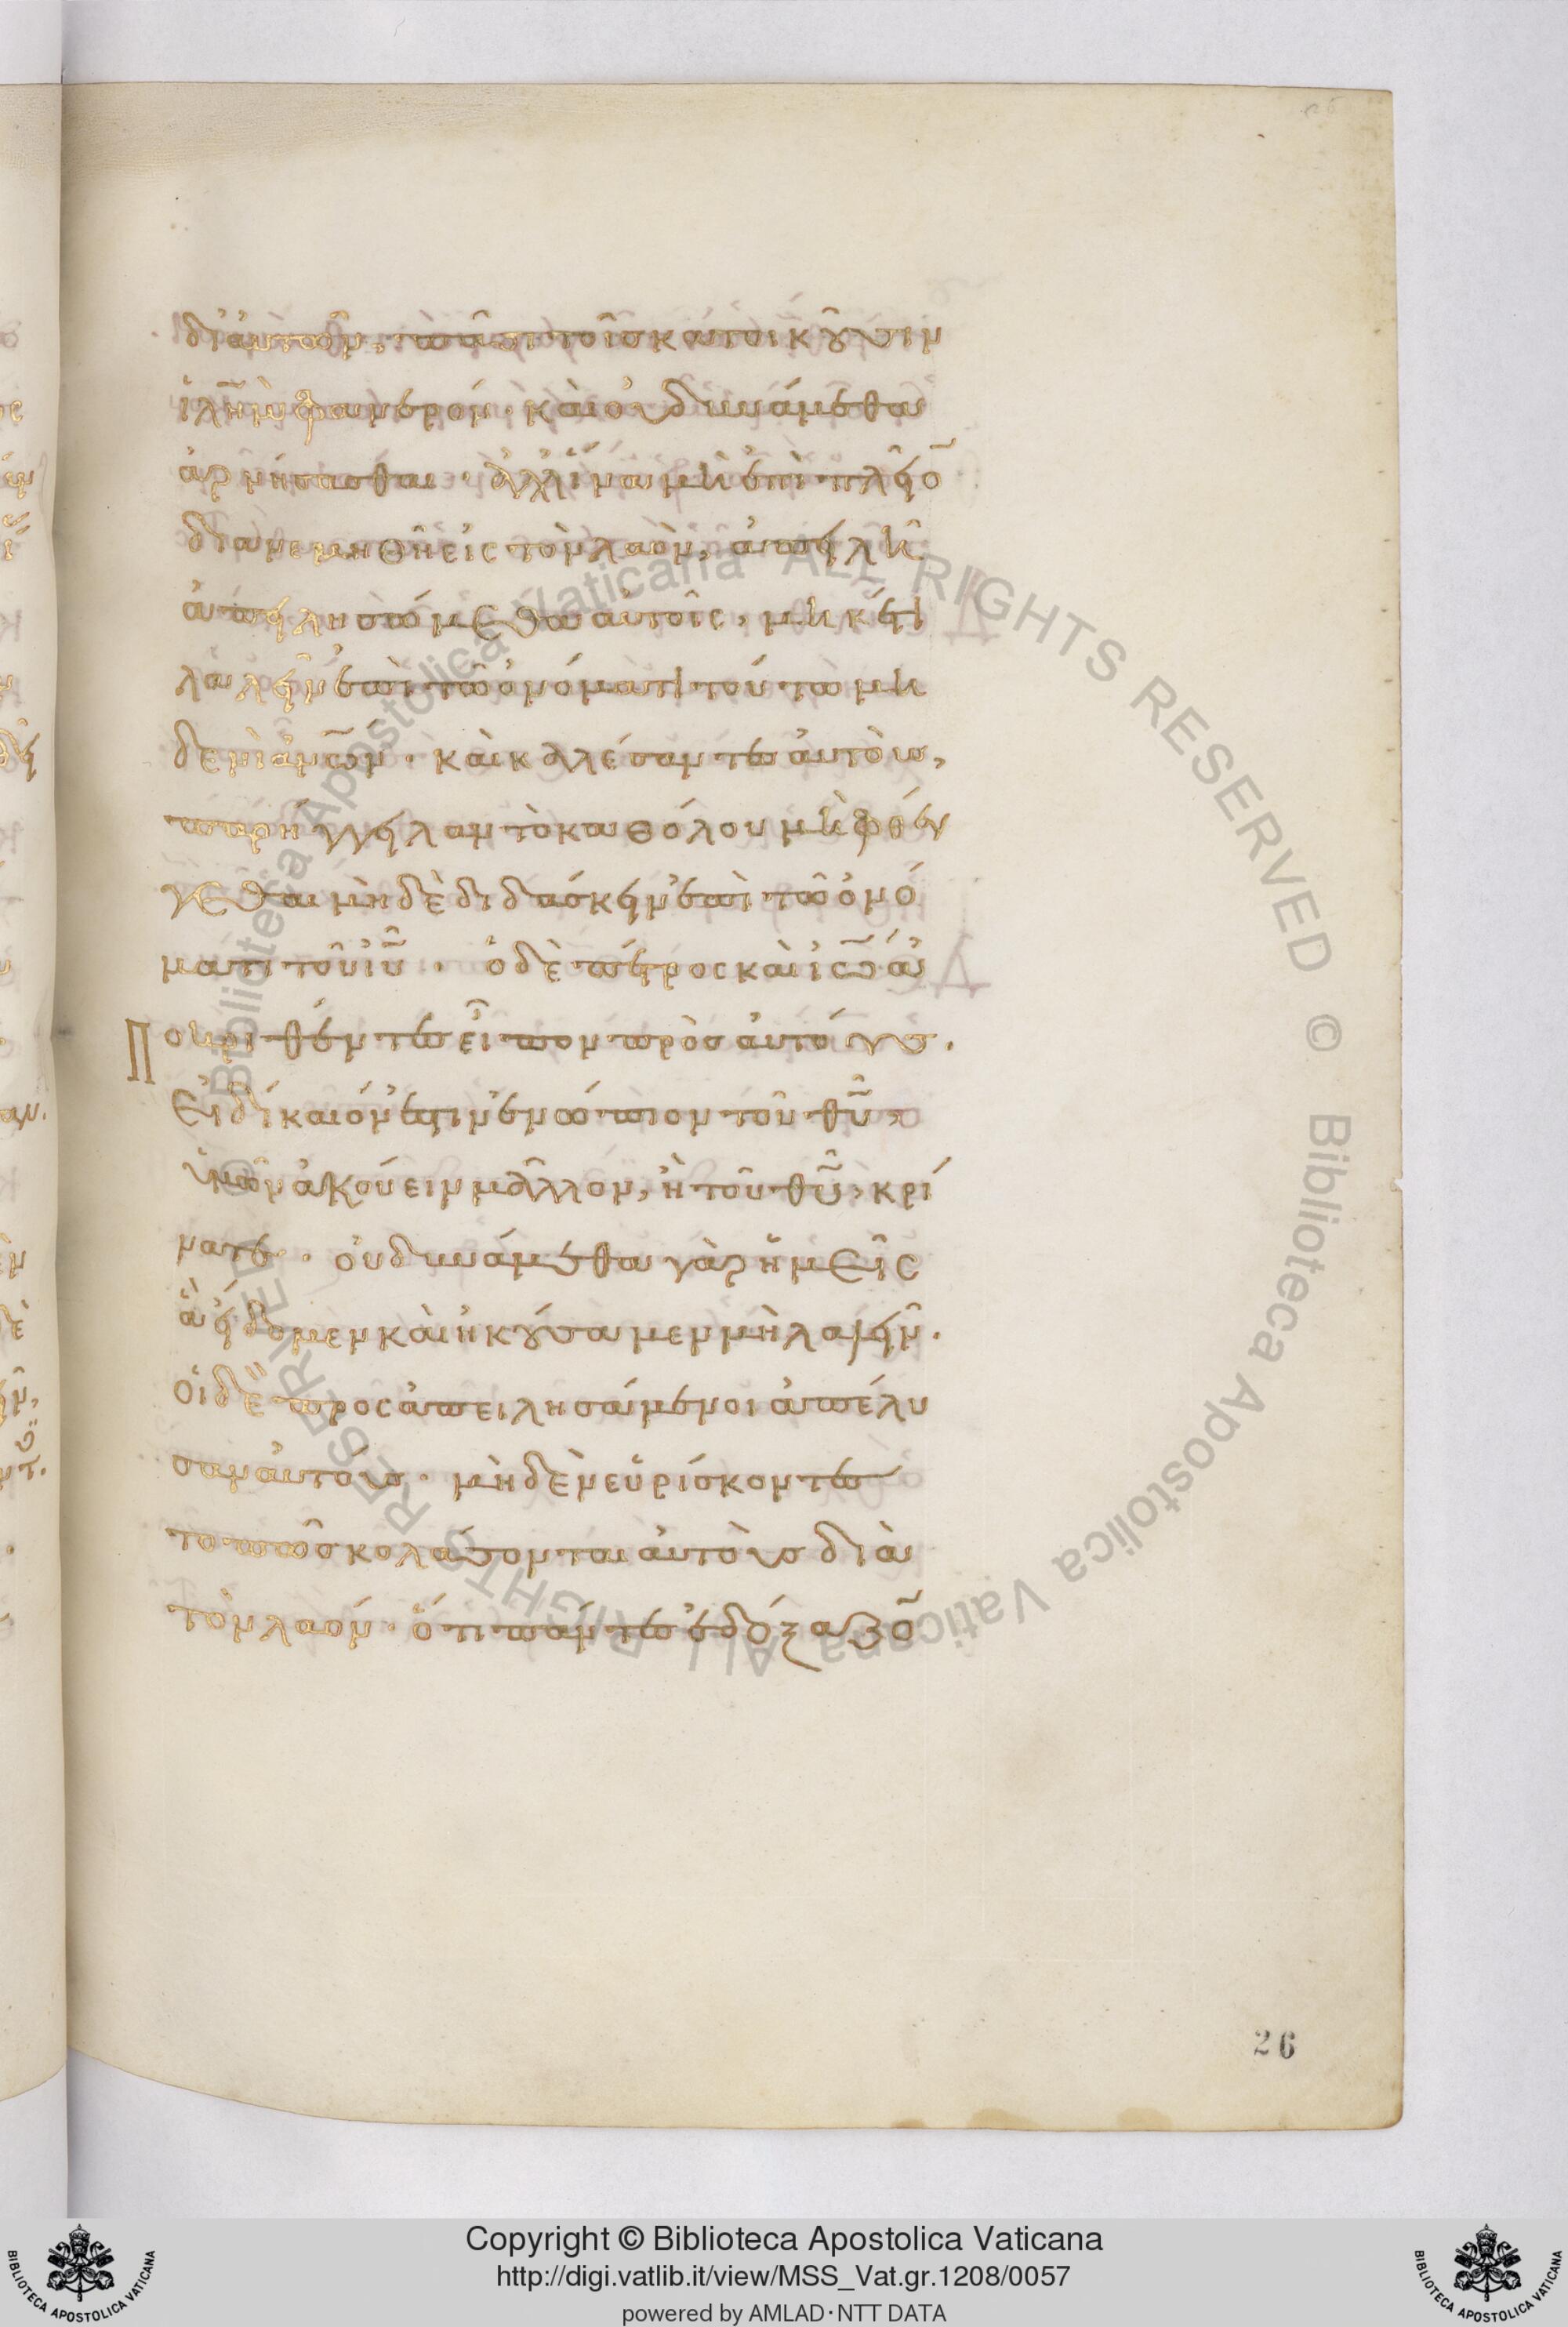 δι αὐτῶν, πᾶσι τοῖς κατοικοῦσιν
ἱλῆμ φανερόν· καὶ οὐ δυνάμεθα
ἀρνήσασθαι· ἀλλ ἵνα μὴ ἐπὶ πλεῖο
διανεμηθῆ εἰς τὸν λαόν, ἀπειλῆ
ἀπειλησόμεθα αὐτοῖς, μηκέτι
λαλεῖν ἐπὶ τῶ ὀνόματι τούτω μη
δενὶ ἀνῶν· καὶ καλέσαντες αὐτοὺς,
παρήγγειλαν τὸ καθόλου μὴ φθέγ
γεσθαι μὴ δὲ διδάσκειν ἐπὶ τῶ ὀνό
ματι τοῦ ἰῦ· ὁ δὲ πέτρος καὶ ἰῶ ἀ
ποκριθέντες εἶπον πρὸς αὐτούς·
Εἰ δίκαιόν ἐστιν ἐνώπιον τοῦ θῦ,
ὑμῶν ἀκούειν μᾶλλον, ἢ τοῦ θῦ, κρί
νατε· οὐ δυνάμεθα γὰρ ἡμεῖς
ἃ εἴδομεν καὶ ἠκούσαμεν μὴ λαλεῖν·
οἱ δὲ προσαπειλησάμενοι ἀπέλυ
σαν αὐτούς· μὴδὲν εὑρίσκοντες
το πῶς κολάσονται αὐτοὺς διὰ
τὸν λαόν· ὅτι πάντες ἐδόξαζο
26
Copyright © Biblioteca Apostolica Vaticana
http://digi.vatlib.it/view/MSS_Vat.gr.1208/0057
powered by AMLAD·NTT DATA
BIBLIOTECA APOSTOLICA VATICANA
BIBLIOTECA APOSTOLICA VATICANA
© Biblioteca Apostolica Vaticana ALL RIGHTS RESERVED © Biblioteca Apostolica Vaticana ALL RIGHTS RESERVED